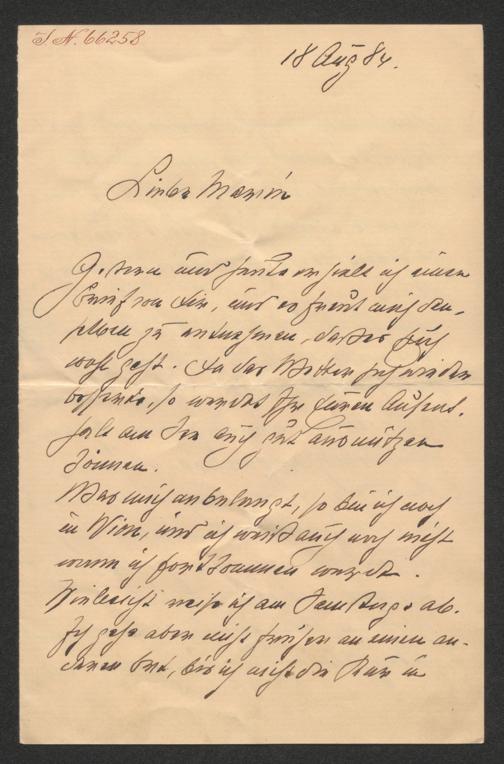 I. N. 66258
18 Aug 84.
Liebe Marie
Gestern und heute erhielt ich einen
Brief von Dir, und es freut mich den-
selben zu entnehmen, daß es Euch
wohl geht. Da das Wetter sich wieder
besserte, so werdet Ihr Euren Aufent-
halt am See auch gut ausnützen
können.
Was mich anbelangt, so bin ich noch
in Wien, und ich weiß auch noch nicht
wann ich fortkommen werde.
Vielleicht reise ich am Samstage ab.
Ich gehe aber nicht früher an einen an-
deren Ort, bis ich nicht die Kur in